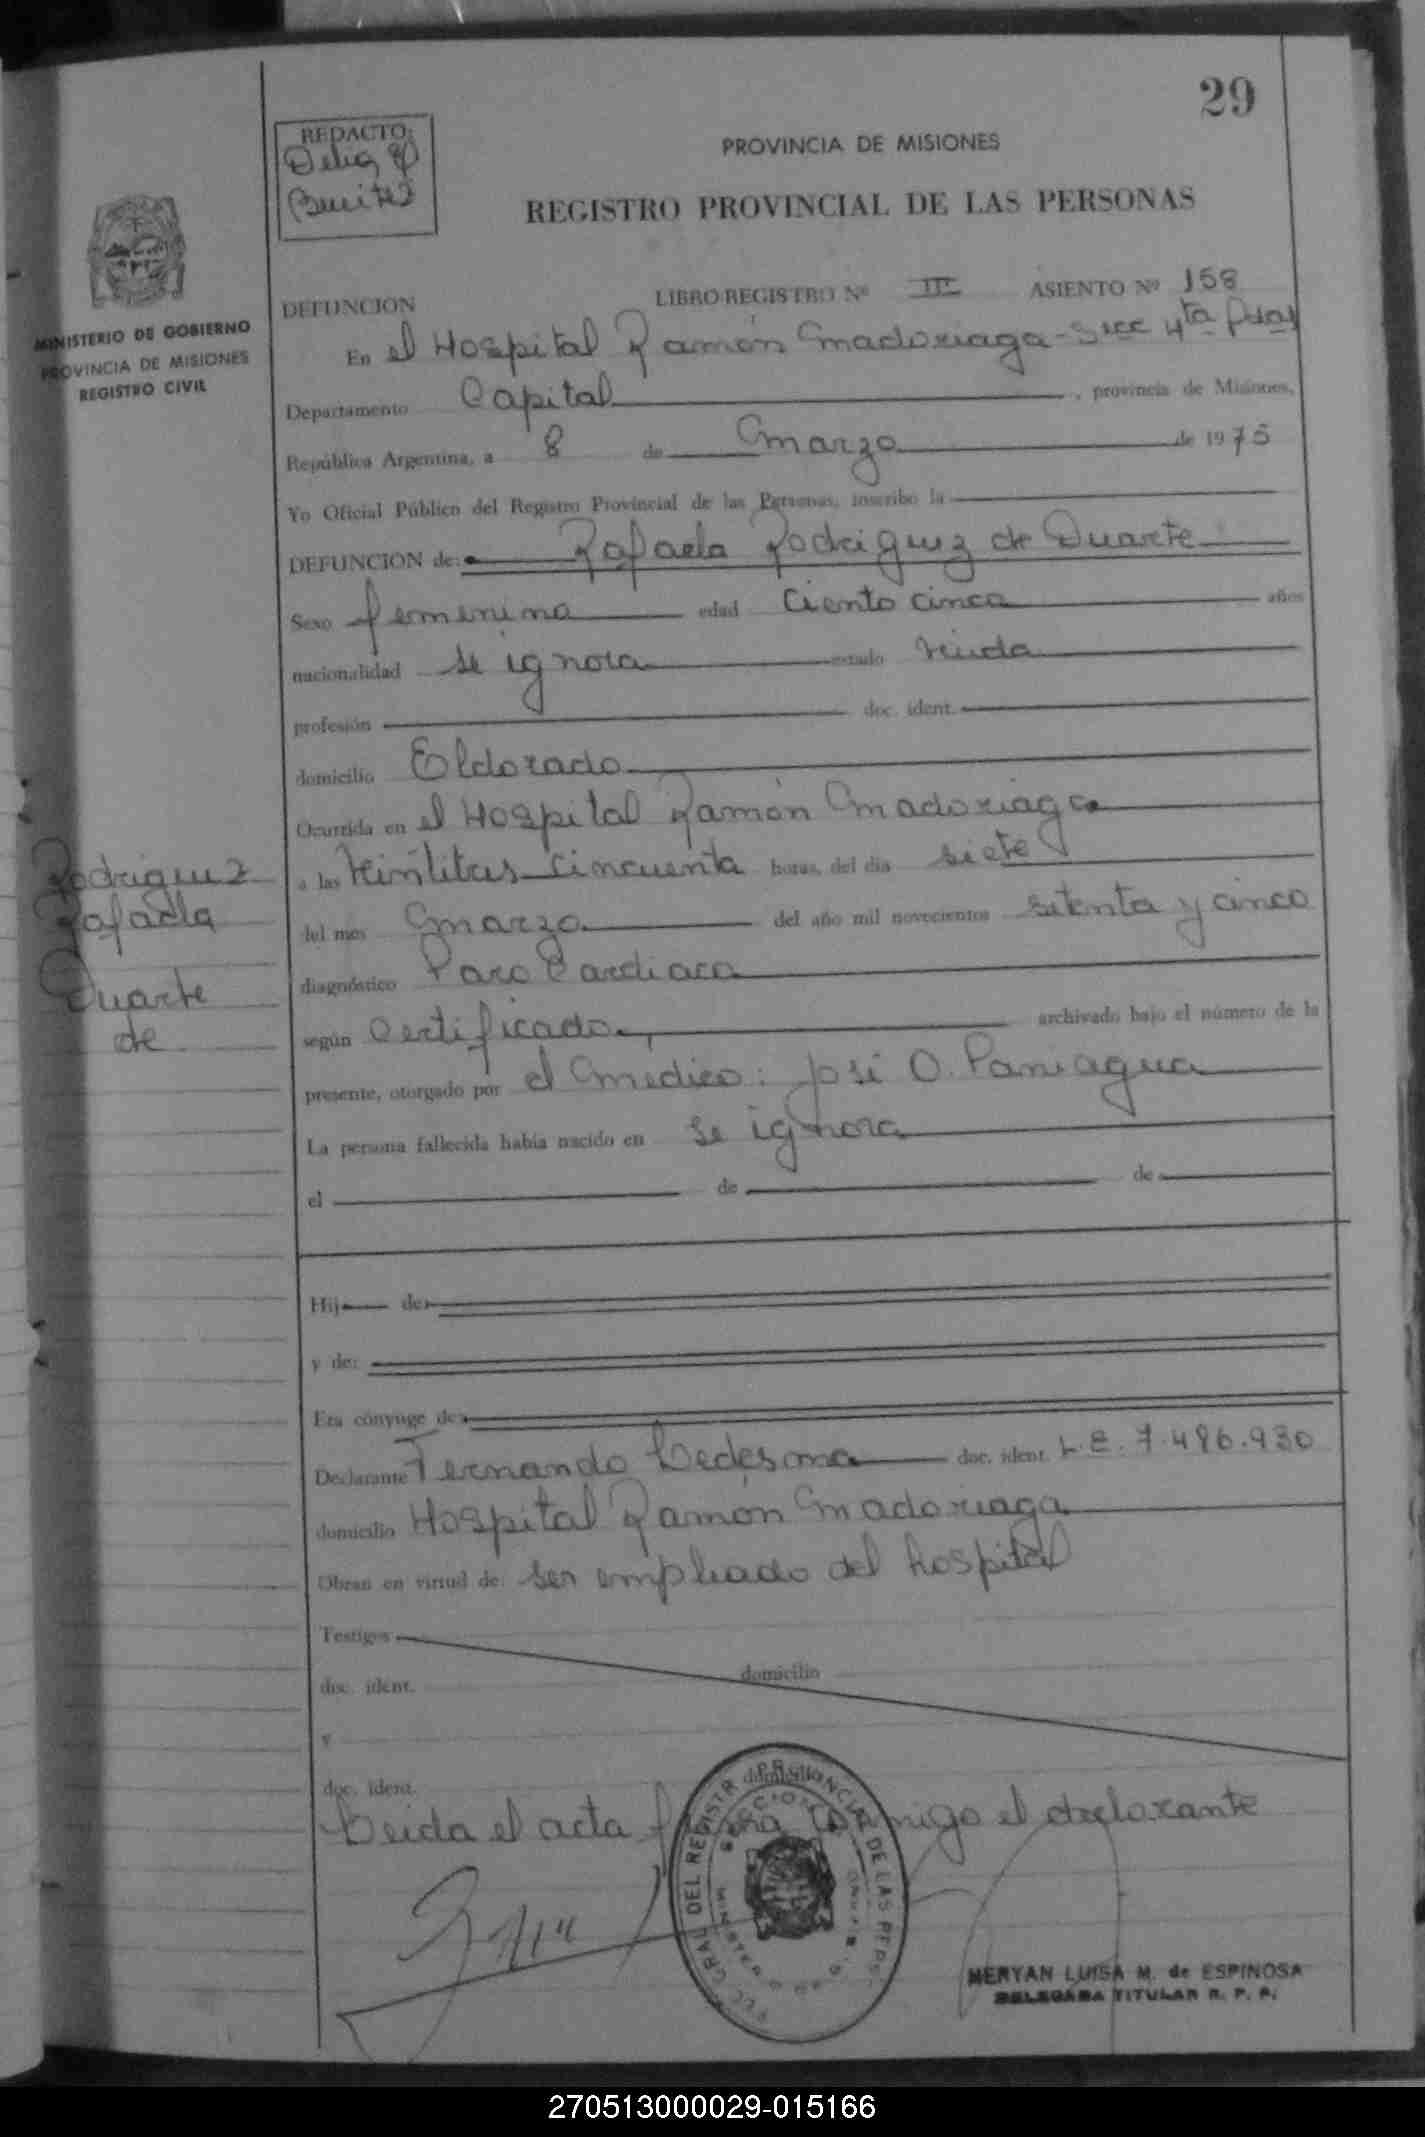 29
REDACTO:
Delia
Benitez
PROVINCIA DE MISIONES
REGISTRO PROVINCIAL DE LAS PERSONAS
MINISTERIO DE GOBIERNO
PROVINCIA DE MISIONES
REGISTRO CIVIL
DEFUNCION LIBRO REGISTRO Nº III ASIENTO Nº 158
En el Hospital Ramón Madoriaga - Secc 4ta Psas
Departamento Capital, provincia de Misiones,
República Argentina, a 8 de marzo de 1975
Yo Oficial Público del Registro Provincial de las Personas, inscribo la
DEFUNCION de: Rafaela Rodriguez de Duarte
Sexo femenina edad Ciento cinco años
nacionalidad se ignora estado viuda
profesión doc. ident.
domicilio Eldorado
Ocurrida en el Hospital Ramón Madoriaga
a las Veintitres cincuenta horas, del día siete
del mes marzo del año mil novecientos setenta y cinco
diagnóstico Paro Cardiaco
según Certificado, archivado bajo el número de la
presente, otorgado por el Medico: José O. Paniagua
La persona fallecida había nacido en se ignora
el de de
Hij de
y de:
Era cónyuge de
Declarante Fernando Ledesma doc. ident. L.E. 7.496.930
domicilio Hospital Ramón Madoriaga
Obran en virtud de: ser empleado del hospital
Testigos
doc. ident. domicilio
y
doc. ident. domicilio
Leida el acta firma conmigo el declarante
Rodriguez
Rafaela
Duarte
de
DEL REGISTR PROVINCIAL DE LAS PERS.
MERYAN LUISA M. de ESPINOSA
DELEGADA TITULAR R. P. P.
270513000029-015166